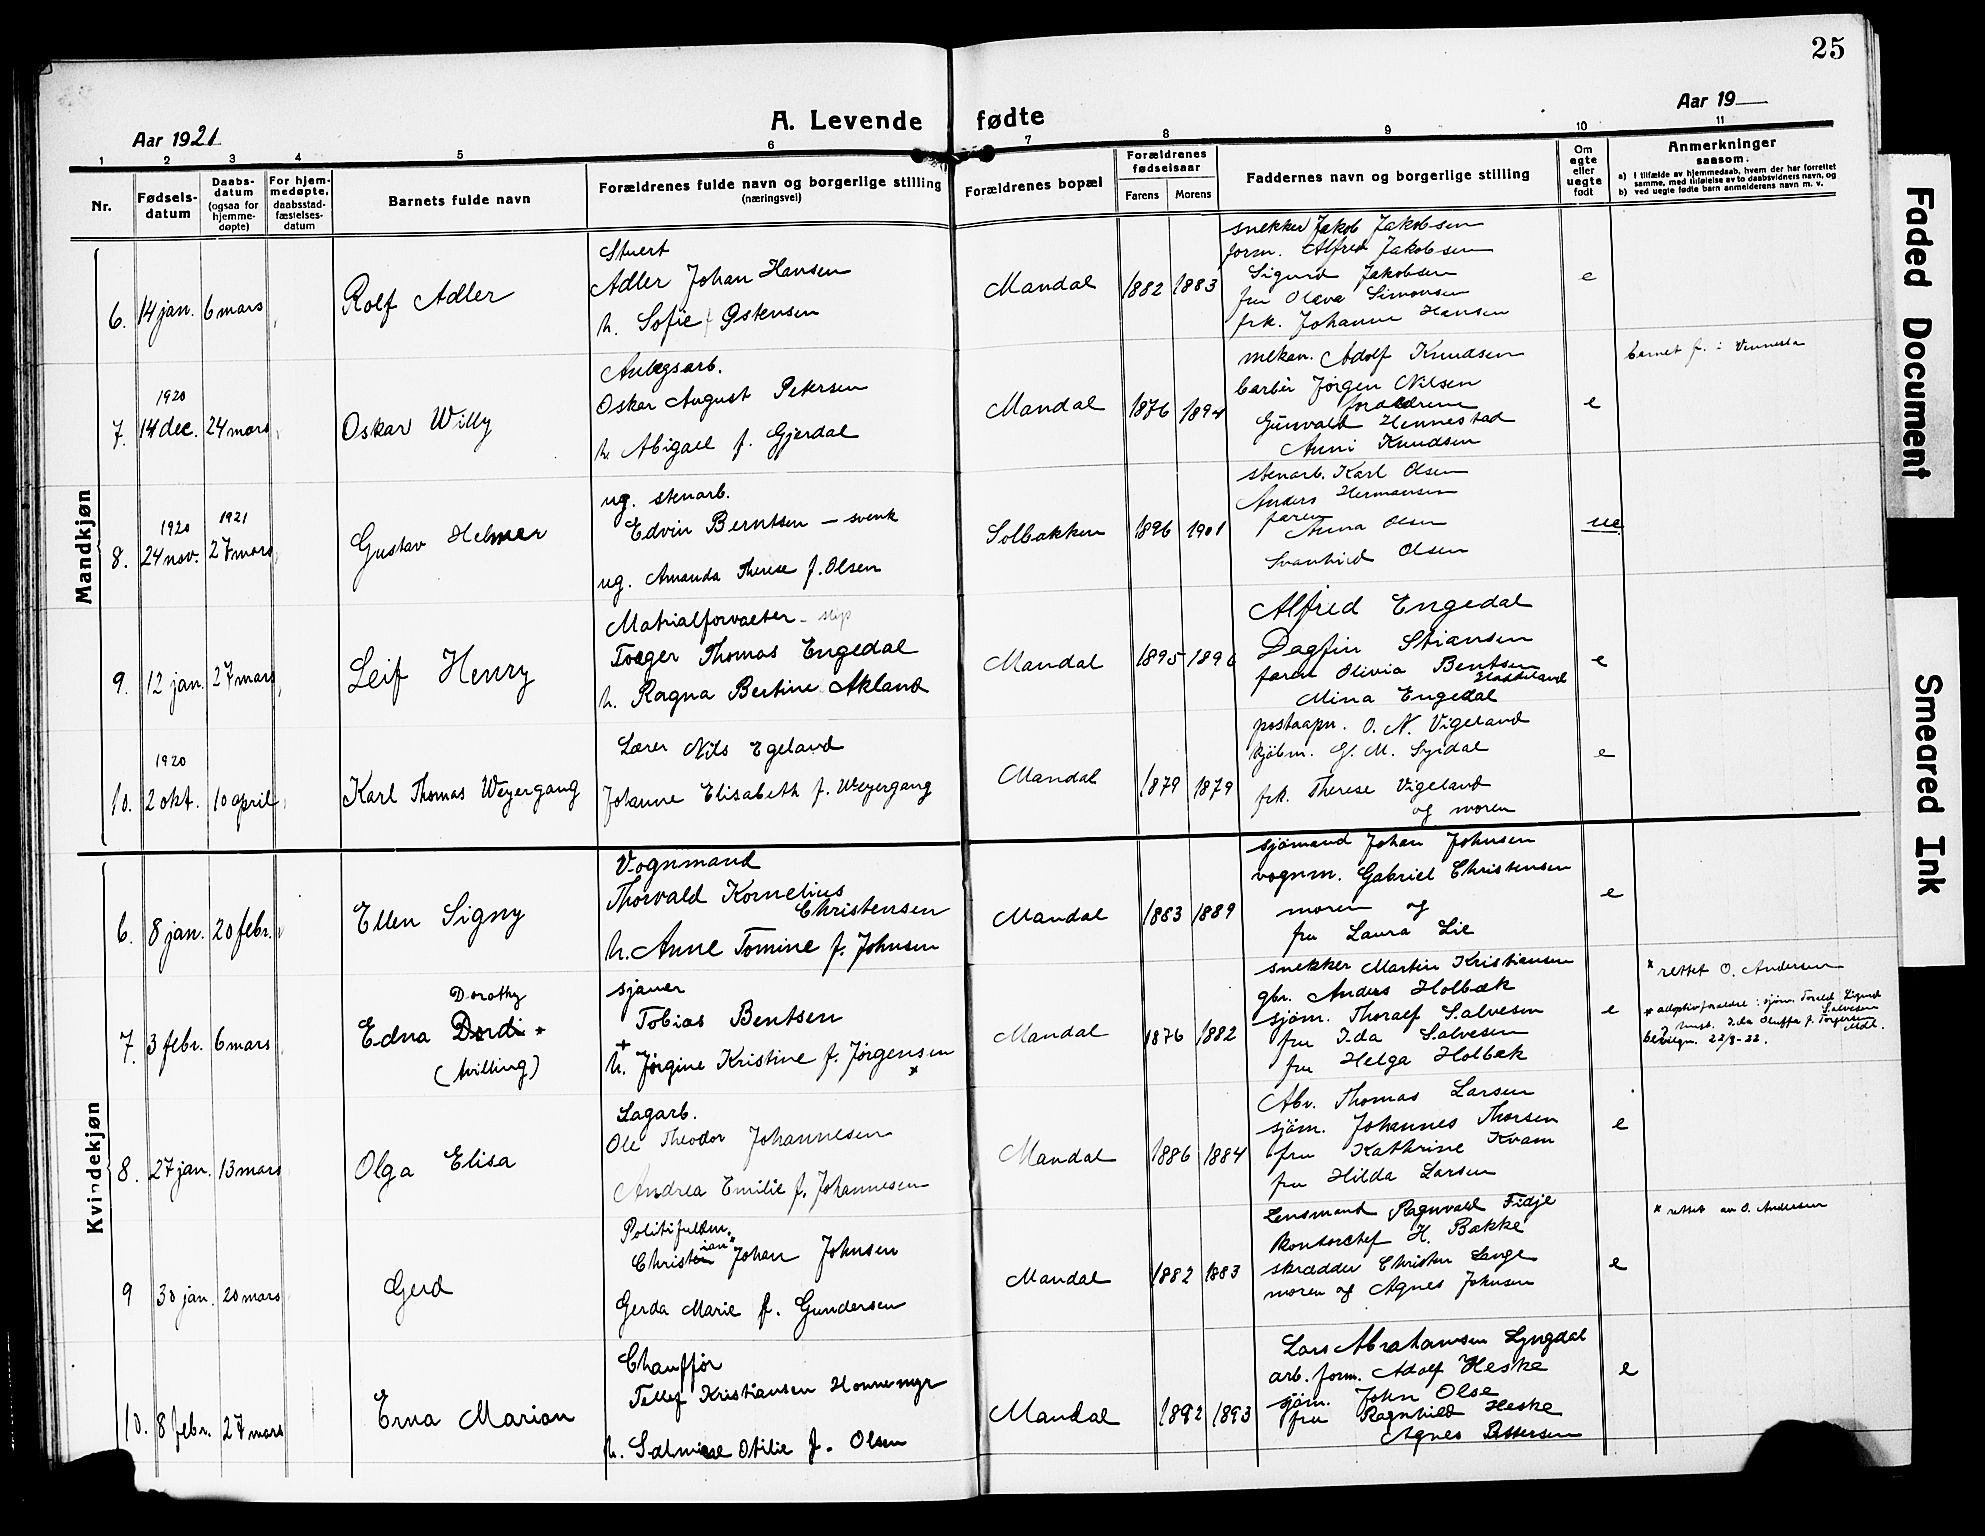 25
Aar 1921
A. Levende fødte
Aar 19
1 2 3 4 5 6 7 8 9 10 11
Nr.
Fødsels-
datum
Daabs-
datum
(ogsaa for
hjemme-
døpte)
For hjem-
medøpte,
daabsstad-
fæstelses-
datum
Barnets fulde navn
Forældrenes fulde navn og borgerlige stilling
(næringsvei)
Forældrenes bopæl
Forældrenes
fødselsaar
Farens Morens
Faddernes navn og borgerlige stilling
Om
egte
eller
uegte
født
Anmerkninger
saasom:
a) I tilfælde av hjemmedaab, hvem der har forrettet
samme, med tilføielse av to daabsvidners navn, og
b) ved uegte fødte barn anmelderens navn m. v.
Mandkjøn
6. 14 jan. 6 mars
Rolf Adler
Stuert
Adler Johan Hansen
h. Sofie f. Østensen
Mandal 1882 1883
snekker Jakob Jakobsen
form. Alfred Jakobsen
Sigurd Jakobsen
fru Oleva Simonsen
frk. Johanne Hansen
e
1920
7. 14 dec. 24 mars
Oskar Willy
Anlegsarb.
Oskar August Petersen
h. Abigael f. Gjerdal
Mandal 1876 1894
mekan. Adolf Knudsen
barbér Jørgen Nilsen
forældrene
Gunvald Hennestad
Anni Knudsen
e
barnet f. i Vennesla
1920 1921
8. 24 nov. 27 mars
Gustav Helmer
ug. stenarb.
Edvin Berntsen – svensk
ug. Amanda Therese f. Olsen
Solbakken 1896 1901
stenarb. Karl Olsen
Anders Hermansen
faren
Anna Olsen
Svanhild Olsen
ue
9. 12 jan. 27 mars
Leif Henry
Matrialforvalter
Torger Thomas Engedal
h. Ragna Bertine Akland
Mandal 1895 1896
Alfred Engedal
Dagfin Stiansen
faren Olivia Bentsen
Mina Engedal
e
1920
10. 2 okt. 10 april
Karl Thomas Weyergang
Lærer Nils Egeland
Johanne Elisabeth f. Weyergang
Mandal 1879 1879
postaapn. O. N. Vigeland
kjøbm. G. M. Syrdal
frk. Therese Vigeland
og moren
e
Kvindekjøn
6. 8 jan. 20 febr.
Ellen Signy
Vognmand
Thorvald Kornelius
Christensen
h. Anne Tomine f. Johnsen
Mandal 1883 1889
sjømand Johan Johnsen
vognm. Gabriel Christensen
moren og
fru Laura Lie
e
7. 3 febr. 6 mars
Dorothy
Edna Dordi *
(tvilling)
sjauer
Tobias Bentsen
+
h. Jørgine Kristine f. Jørgensen
*
Mandal 1876 1882
snekker Martin Kristiansen
gbr. Anders Holbæk
sjøm. Thoralf Salvesen
fru Ida Salvesen
fru Helga Holbæk
e
* rettet O. Andersen
* adoptivforældre: sjøm. Toralf Sigurd
Salvesen
Ida Oluffa f. Torgersen
Mdl.
bevilgn. 22/3-22.
8. 27 jan. 13 mars
Olga Elisa
Lagarb.
Ole Theodor Johannesen
Andrea Emilie f. Johannesen
Mandal 1886 1884
Abr. Thomas Larsen
sjøm. Johannes Thorsen
fru Kathrine Kvam
fru Hilda Larsen
e
9 30 jan. 20 mars
Gerd
Politifuldm.
ian*
Christen Johan Johnsen
Gerda Marie f. Gundersen
Mandal 1882 1883
Lensmand Ragnvald Fidje
kontorchef H. Bakke
skrædder Christen Lange
moren og Agnes Johnsen
e
* rettet av O. Andersen
10. 8 febr. 27 mars
Erna Marion
Chauffør
Tellef Kristiansen Honnemyr
h. Salmine Otilie f. Olsen
Mandal 1892 1893
Lars Abrahamsen Lyngdal
arb. form. Adolf Heske
sjøm. John Olse
fru Ragnhild Heske
Agnes Pettersen
e
Faded Document
Smeared Ink